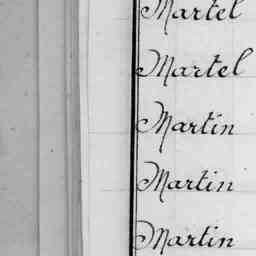 Martel
Martel
Martin
Martin
Martin